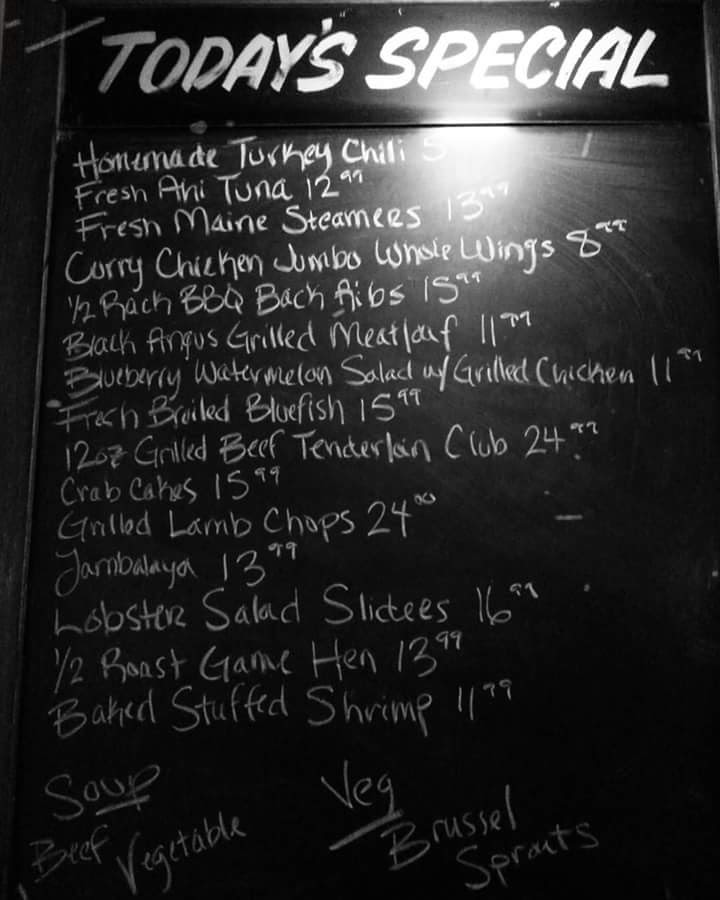 TODAY'S SPECIAL
Homemade Turkey Chili 5
Fresh Ahi Tuna 12 99
Fresh Maine Steamers 13 99
Curry Chicken Jumbo Whole Wings 8 99
1/2 Rack BBQ Back Ribs 15 99
Black Angus Grilled Meatloaf 11 99
Blueberry Watermelon Salad w/ Grilled Chicken 11 99
Fresh Broiled Bluefish 15 99
12oz Grilled Beef Tenderloin Club 24 99
Crab Cakes 15 99
Grilled Lamb Chops 24 00
Jambalaya 13 99
Lobster Salad Sliders 16 99
1/2 Roast Game Hen 13 99
Baked Stuffed Shrimp 11 99
Soup
Beef Vegetable
Veg
Brussel
Sprouts